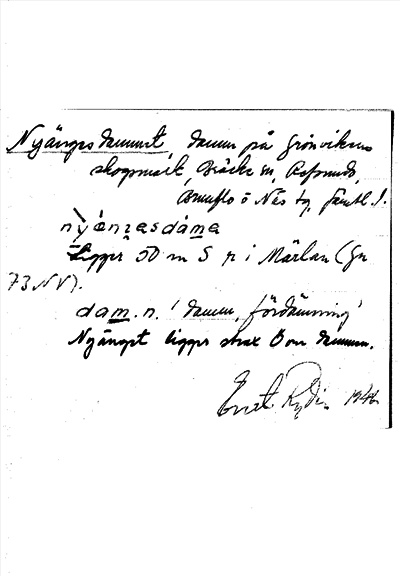 Nyängsdammet, damm på Grönvikens
skogsskift, Bräcke sn, Refsunds,
Brunflo o Näs tg, Jämtl.
nyæŋasdáma
Ligger 50 m S r i Märlan (Gn
73 NV).
dam. n. 'damm, fördämning'
Nyänget ligger strax Ö om dammen.
Ernst Rydin 1946